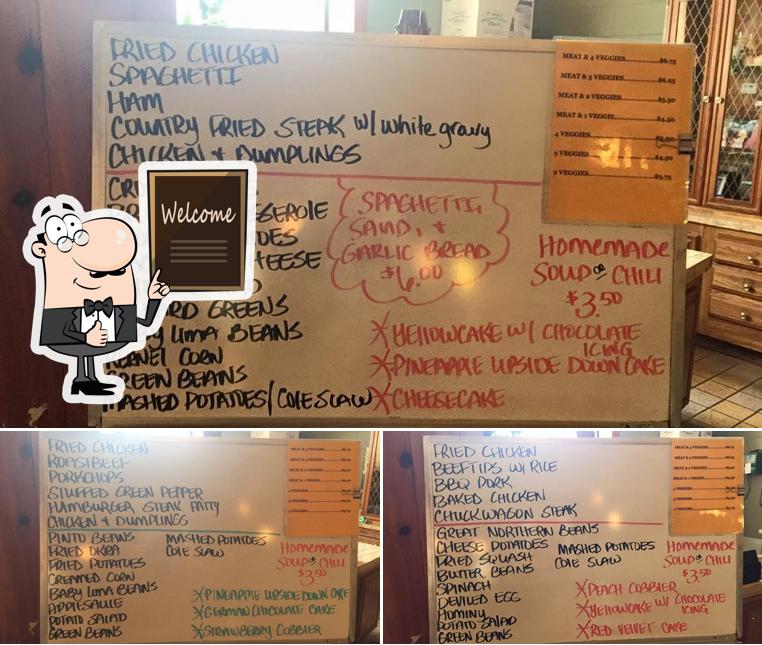 FRIED CHICKEN
SPAGHETTI
HAM
COUNTRY FRIED STEAK W/ white gravy
CHICKEN & DUMPLINGS
MEAT & 4 VEGGIES $6.75
MEAT & 3 VEGGIES $6.25
MEAT & 2 VEGGIES $5.50
MEAT & 1 VEGGIE $4.50
4 VEGGIES $5.00
3 VEGGIES $4.50
2 VEGGIES $3.75
Welcome
SPAGHETTI,
SALAD, &
GARLIC BREAD
$6.00
HOMEMADE
SOUP or CHILI
$3.50
GREENS
LIMA BEANS
KERNEL CORN
GREEN BEANS
MASHED POTATOES/COLE SLAW
*YELLOWCAKE W/ CHOCOLATE
ICING
*PINEAPPLE UPSIDE DOWN CAKE
*CHEESECAKE
FRIED CHICKEN
ROAST BEEF
PORKCHOPS
STUFFED GREEN PEPPER
HAMBURGER STEAK PATTY
CHICKEN & DUMPLINGS
PINTO BEANS
FRIED OKRA
FRIED POTATOES
CREAMED CORN
BABY LIMA BEANS
APPLESAUCE
POTATO SALAD
GREEN BEANS
MASHED POTATOES
COLE SLAW
HOMEMADE
SOUP or CHILI
$3.50
*PINEAPPLE UPSIDE DOWN CAKE
*GERMAN CHOCOLATE CAKE
*STRAWBERRY COBBLER
FRIED CHICKEN
BEEFTIPS W/ RICE
BBQ PORK
BAKED CHICKEN
CHUCKWAGON STEAK
GREAT NORTHERN BEANS
CHEESE POTATOES
FRIED SQUASH
BUTTER BEANS
SPINACH
DEVILED EGG
HOMINY
POTATO SALAD
GREEN BEANS
MASHED POTATOES
COLE SLAW
HOMEMADE
SOUP or CHILI
$3.50
*PEACH COBBLER
*YELLOWCAKE W/ CHOCOLATE
ICING
*RED VELVET CAKE